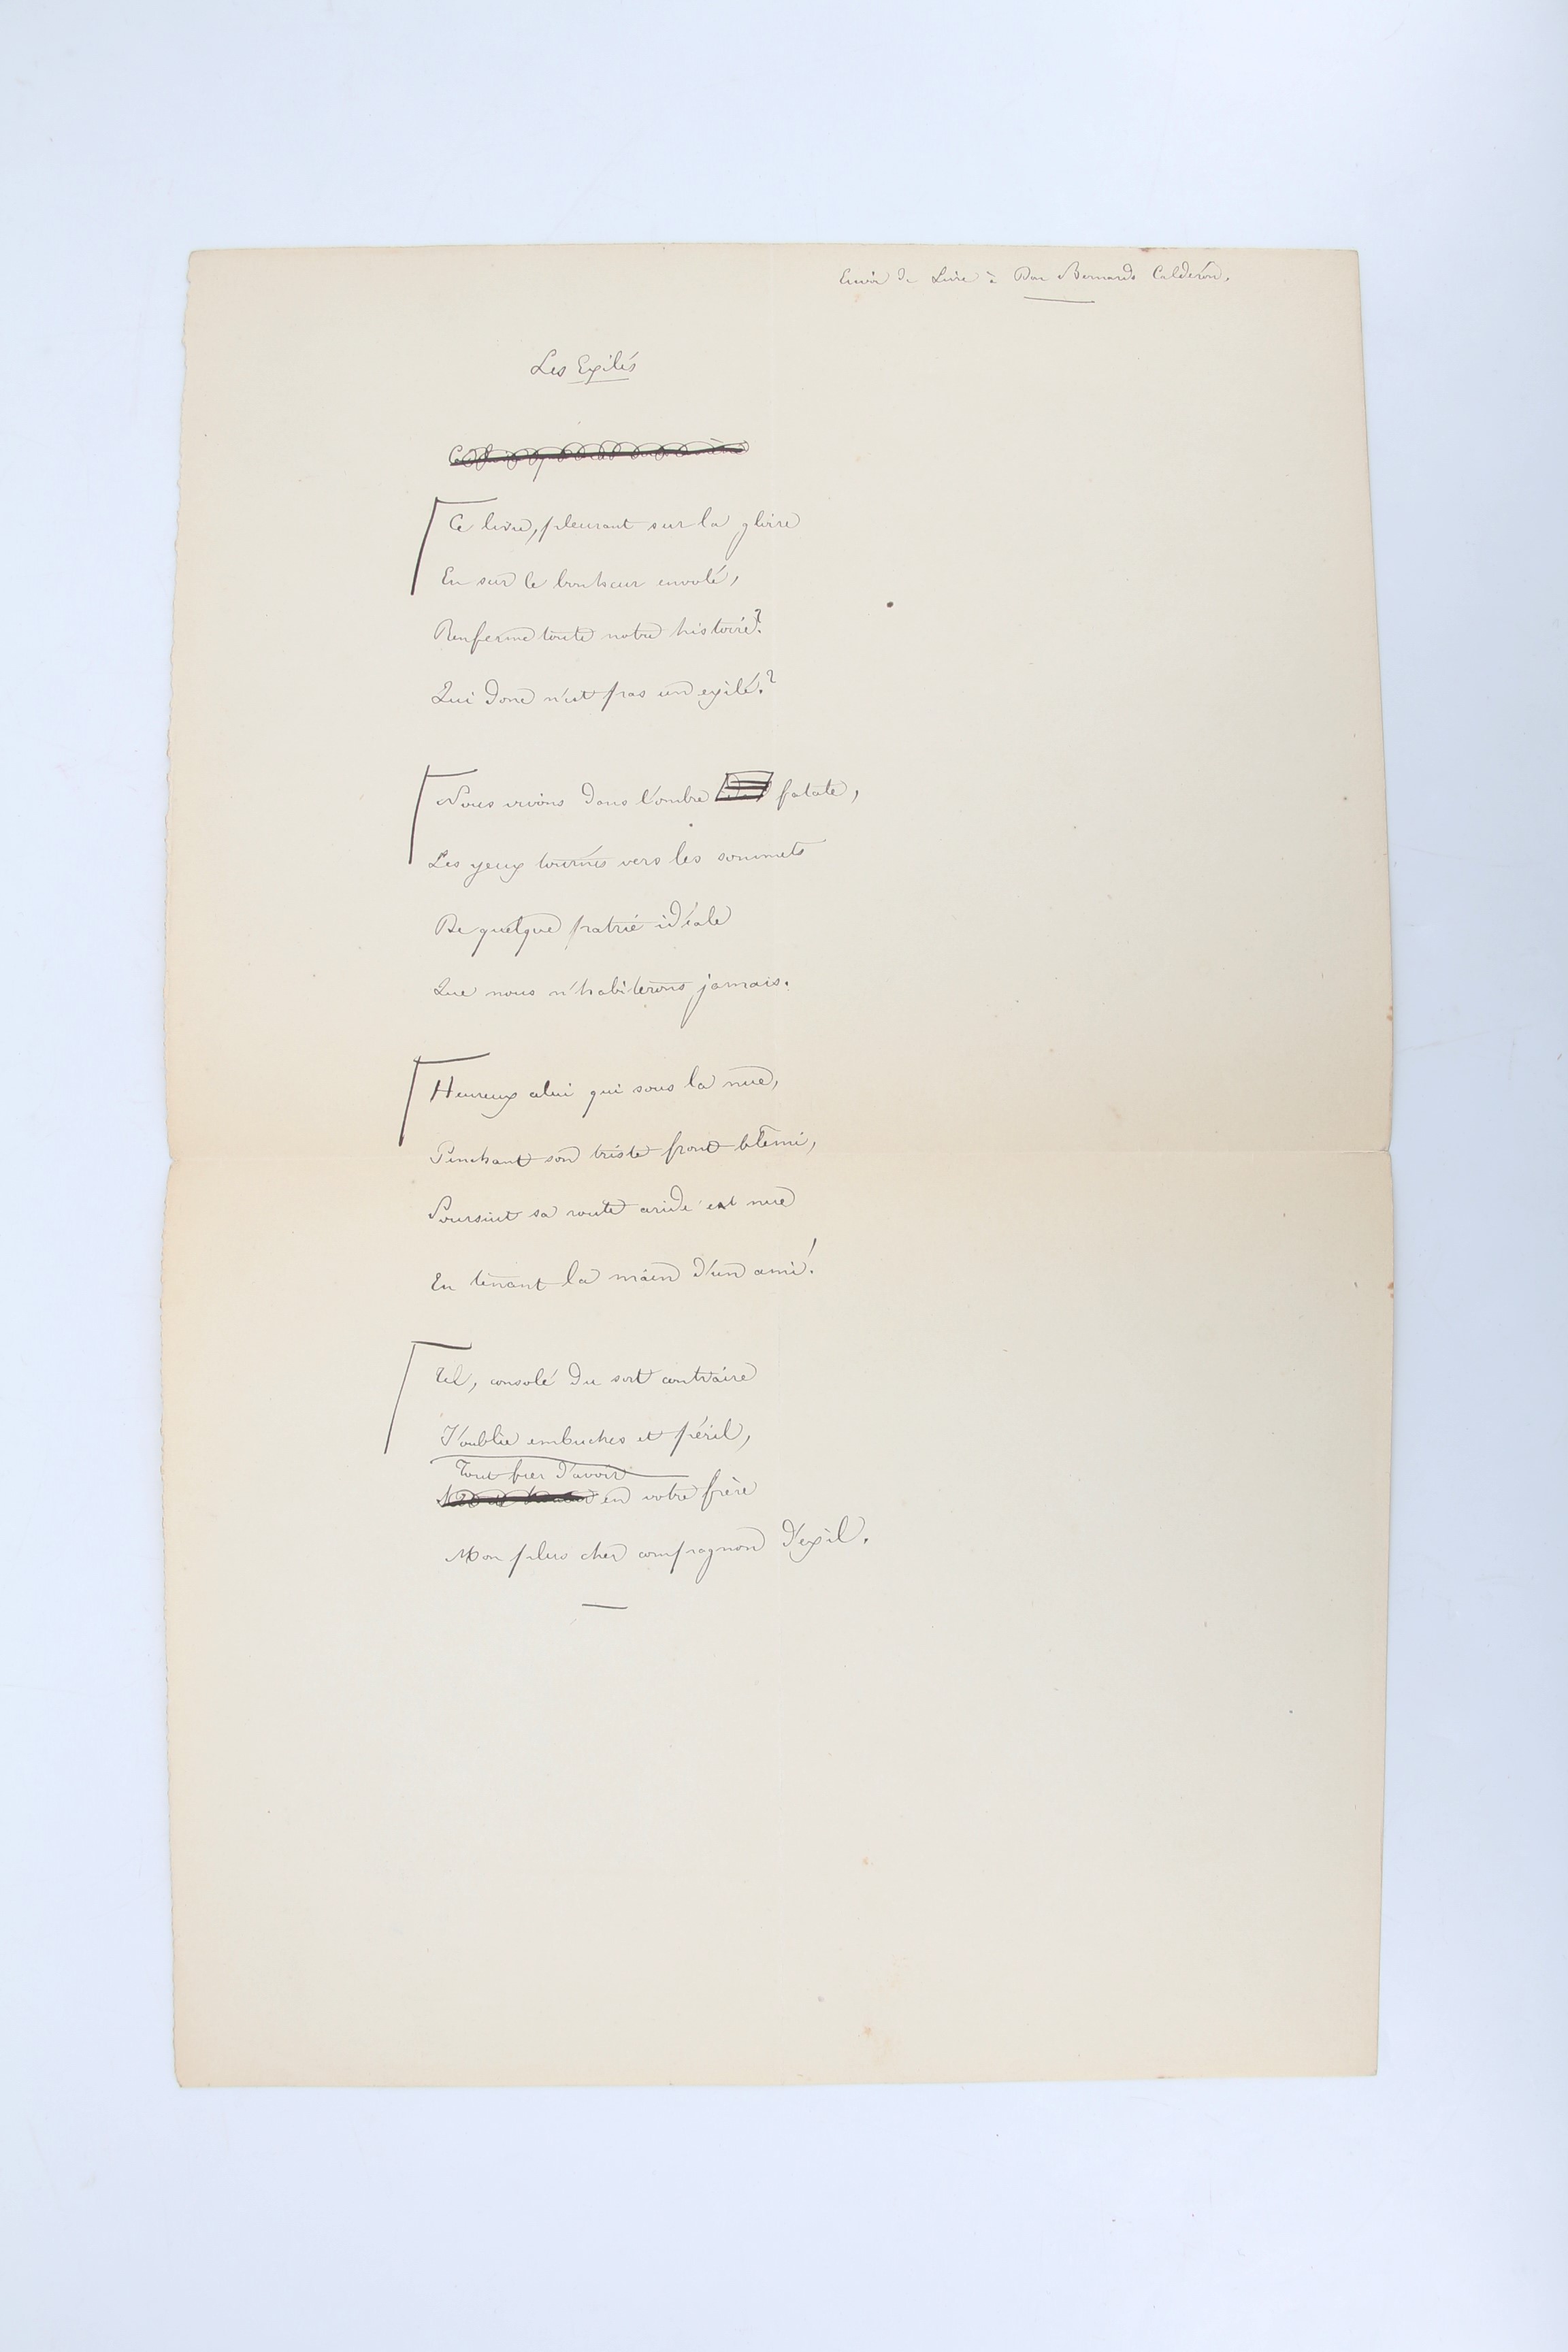 Envoi de Livre à Don Bernardo Calderón.
Les Exilés
Ce livre, pleurant sur la gloire
Et sur le bonheur envolé,
Renferme toute notre histoire?
Qui donc n'est pas un exilé?
Nous vivons dans l'ombre fatale,
Les yeux tournés vers les sommets
De quelque patrie idéale
Que nous n'habiterons jamais.
Heureux celui qui sous la nue,
Penchant son triste front blêmi,
Poursuit sa route aride et nue
En tenant la main d'un ami!
Tel, consolé du sort contraire
J'oublie embuches et péril,
Tout fier d'avoir
en votre frère
Mon plus cher compagnon d'exil.